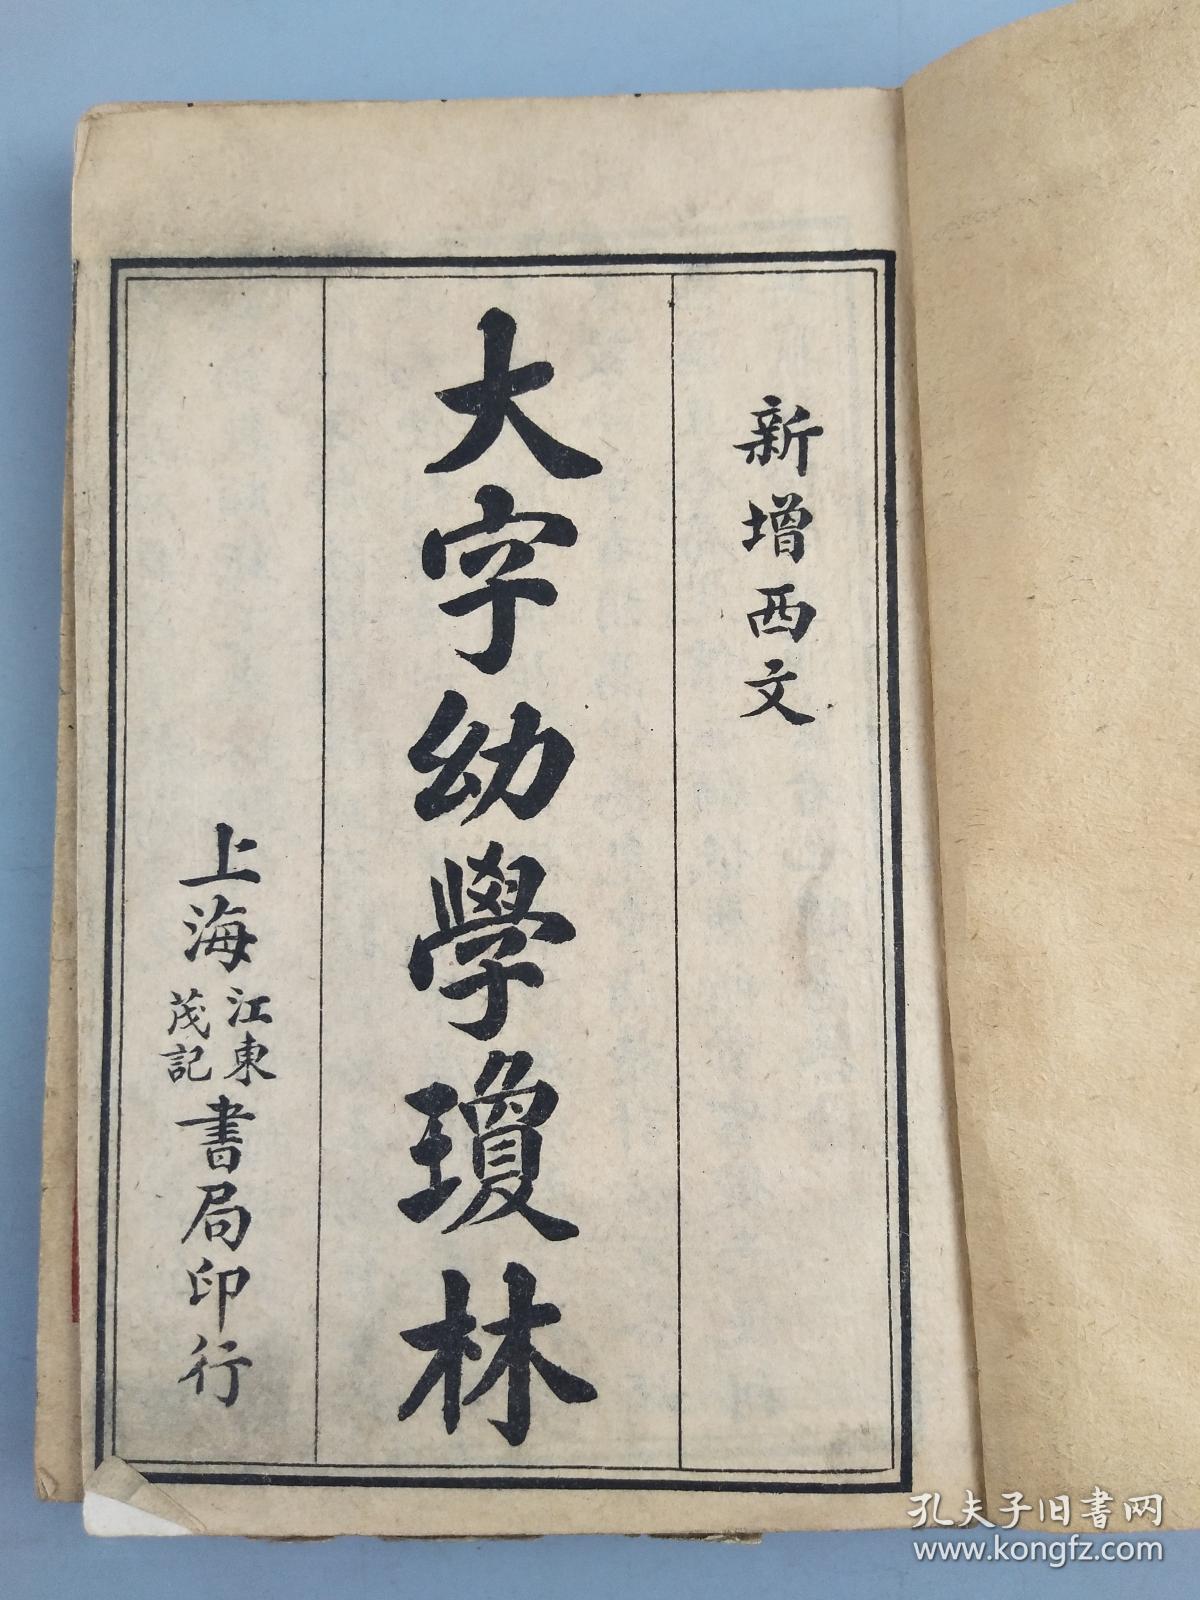 新增西文
大字幼學瓊林
上海江東茂記書局印行
孔夫子旧書网
www.kongfz.com